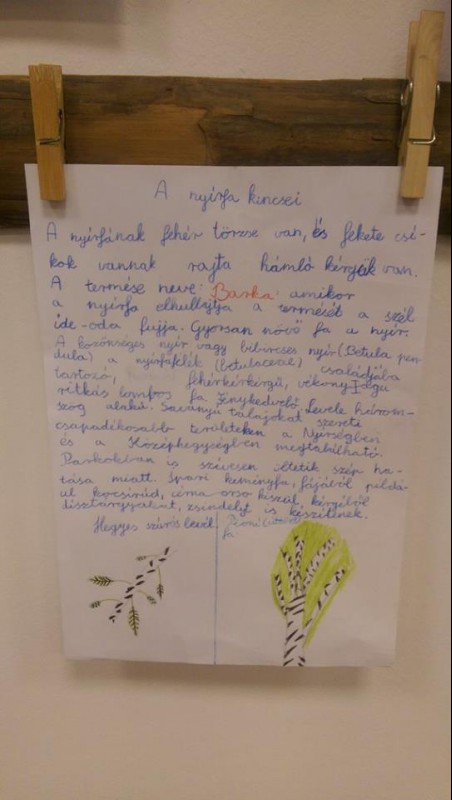 A nyírfa kincsei
A nyírfának fehér törzse van, és fekete csí-
kok vannak rajta hámló kérgük van.
A termése neve: Barka amikor
a nyírfa elhullajtja a termését a szél
ide-oda fujja. Gyorsan növő fa a nyír.
A közönséges nyír vagy bibircses nyír (Betula pen-
dula) a nyírfafélék (betulaceae) családjába
tartozó, fehérkérgű, vékony ágú
ritkás lombos fa. Fénykedvelő. Levele három-
szög alakú. Savanyú talajokat szereti
csapadékosabb területeken a Nyírségben
és a Középhegységben megtalálható.
Parkokban is szívesen ültetik szép ha-
tása miatt. Ipari keményfa, fájából példá-
ul kocsirúd, cérna orsó készül, kérgéből
dísztárgyakat, zsindelyt is készítenek.
Hegyes szúrós levél
fa